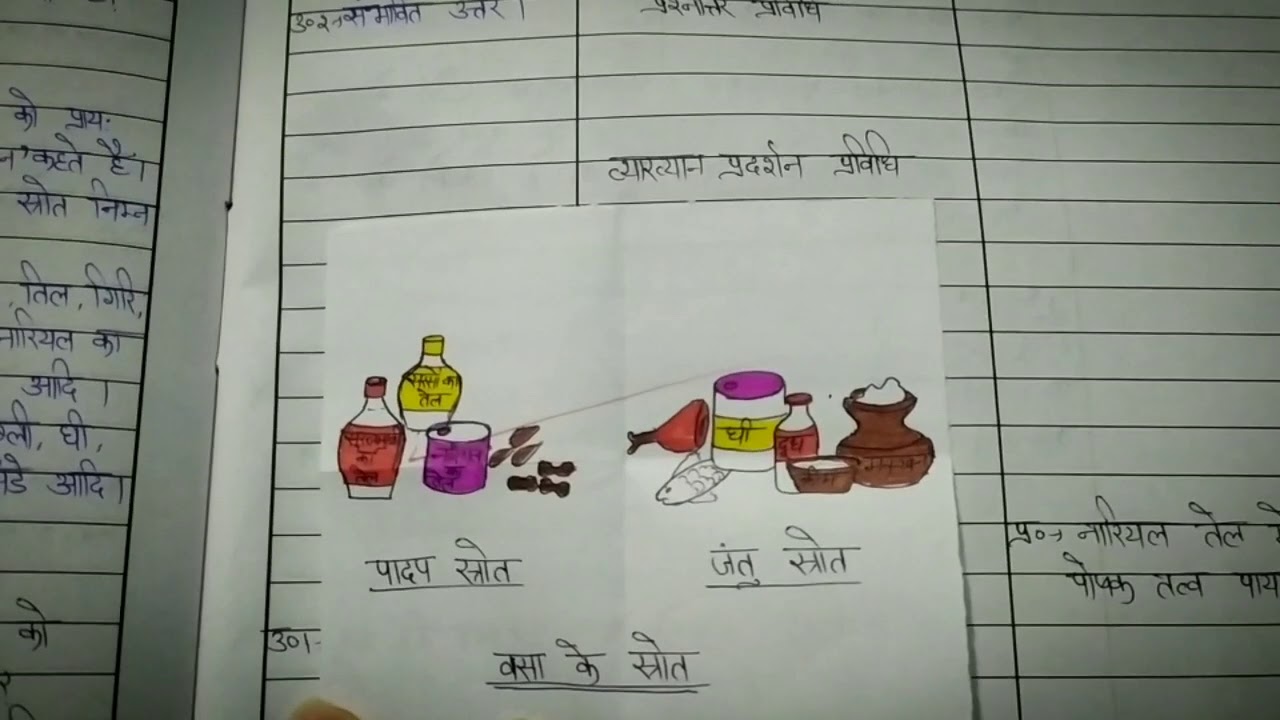 को प्रायः
न' कहते है।
स्रोत निम्न
, तिल, गिरि,
नारियल का
आदि।
ली, घी,
डे आदि।
को
उ०२→ संभावित उत्तर।
प्रश्नोत्तर प्रविधि
व्याख्यान प्रदर्शन प्रविधि
सरसों का
तेल
का
तेल
घी
दूध
मक्खन
पादप स्रोत
जंतु स्रोत
उ०१-
वसा के स्रोत
प्र०→ नारियल तेल
पोषक तत्व पाय